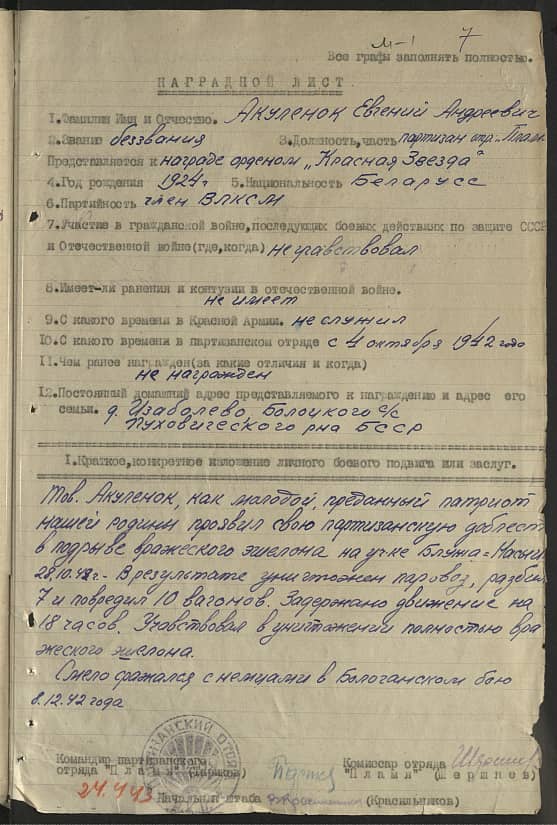 М-1 7
Все графы заполнять полностью.
НАГРАДНОЙ ЛИСТ
1.Фамилия Имя и Отчество. Акуленок Евгений Андреевич
2.Звание беззвания 3.Должность,часть партизан отр. „Пламя
Представляется к награде орденом „Красная Звезда"
4.Год рождения 1924г 5.Национальность Беларусс
6.Партийность член ВЛКСМ
7.Участие в гражданской войне,последующих боевых действиях по защите СССР
и Отечественной войне(где,когда) не учавствовал
8.Имеет-ли ранения и контузии в отечественной войне.
не имеет
9.С какого времени в Красной Армии. не служил
10.С какого времени в партизанском отряде с 4 октября 1942 года
11.Чем ранее награжден(за какие отличия и когда)
не награжден
12.Постоянный домашний адрес представляемого к награждению и адрес его
семьи. д. Изаболево, Болоцкого с/с
Пуховического р-на БССР
1.Краткое,конкретное изложение личного боевого подвига или заслуг.
Тов. Акуленок, как молодой, преданный патриот
нашей родины проявил свою партизанскую доблесть
в подрыве вражеского эшелона на уч-ке Блужа-
28.10.42г- В результате уничтожен паровоз, разбил
7 и повредил 10 вагонов. Задержано движение на
18 часов. Учавствовал в уничтожении полностью вра
жеского эшелона.
Смело сражался с немцами в Бологанском бою
8.12.42 года
Командир партизанского
отряда "Пламя"
Комиссар отряда
"Пламя" (Шершнев)
24.4.43
Начальник штаба (Красильников)